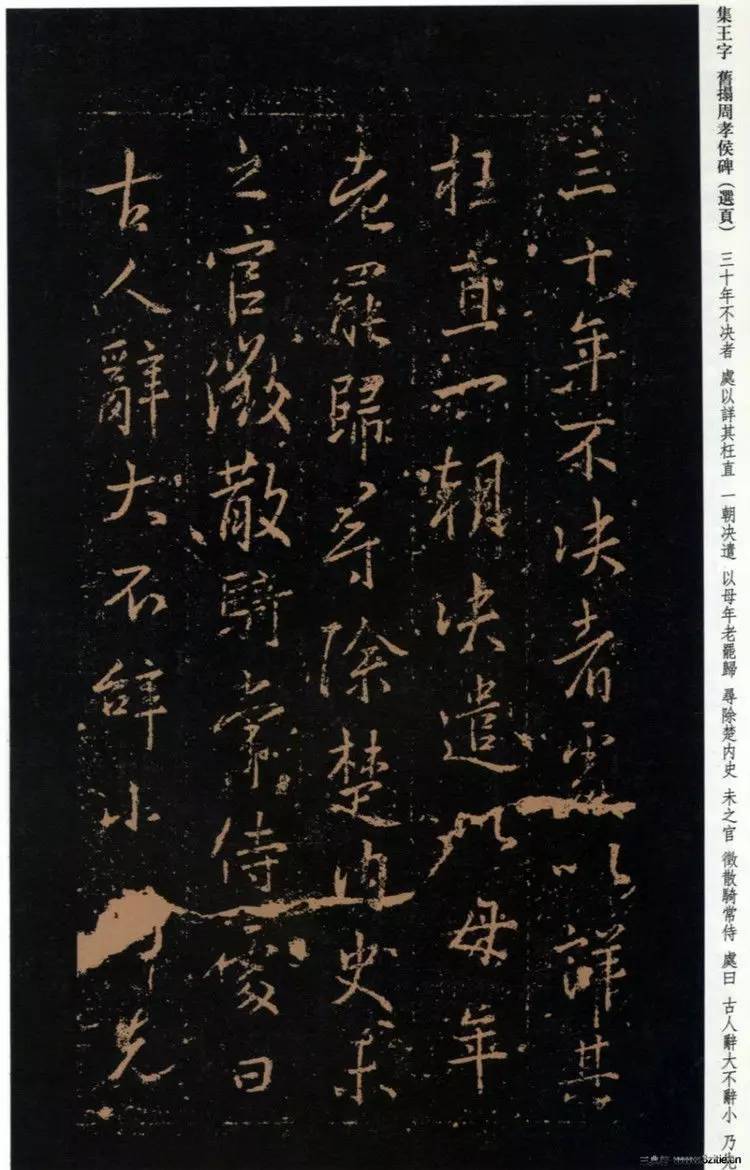 集王字 舊搨周孝侯碑（選頁） 三十年不决者 處以詳其枉直 一朝决遣 以母年老罷歸 尋除楚内史 未之官 徵散騎常侍 處曰 古人辭大不辭小 乃先
三十年不決者處以詳其
枉直一朝決遣以母年
老罷歸尋除楚内史未
之官徵散騎常侍處曰
古人辭大不辭小乃先